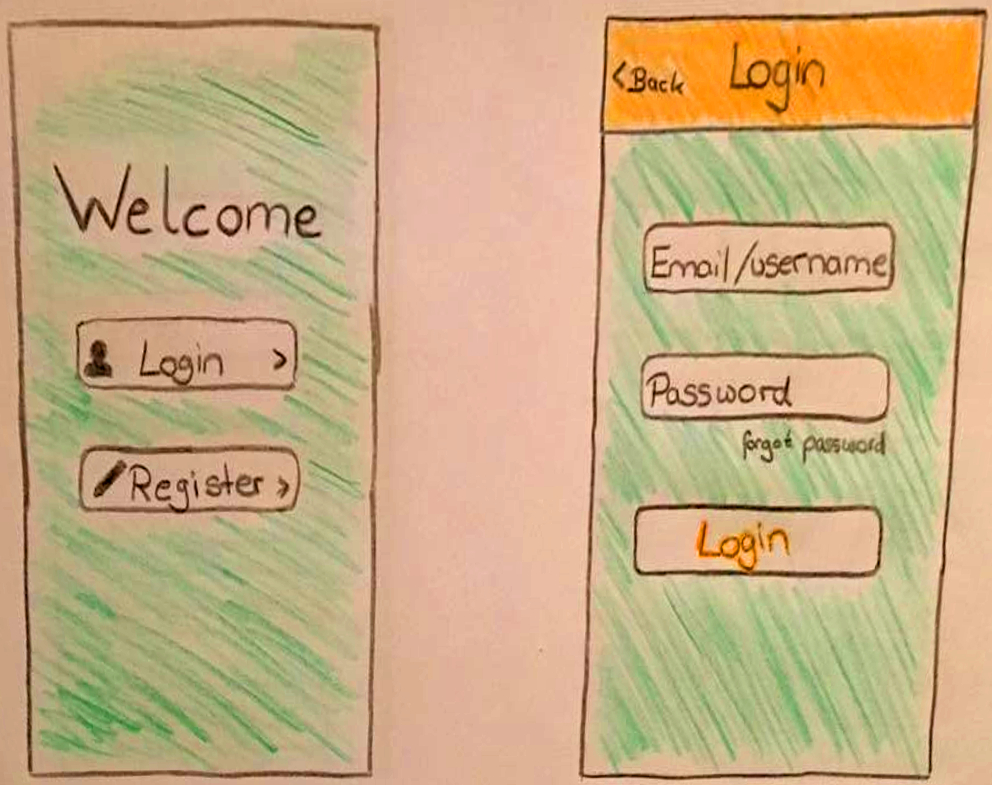 Welcome
Login >
Register >
< Back Login
Email/username
Password
forgot password
Login